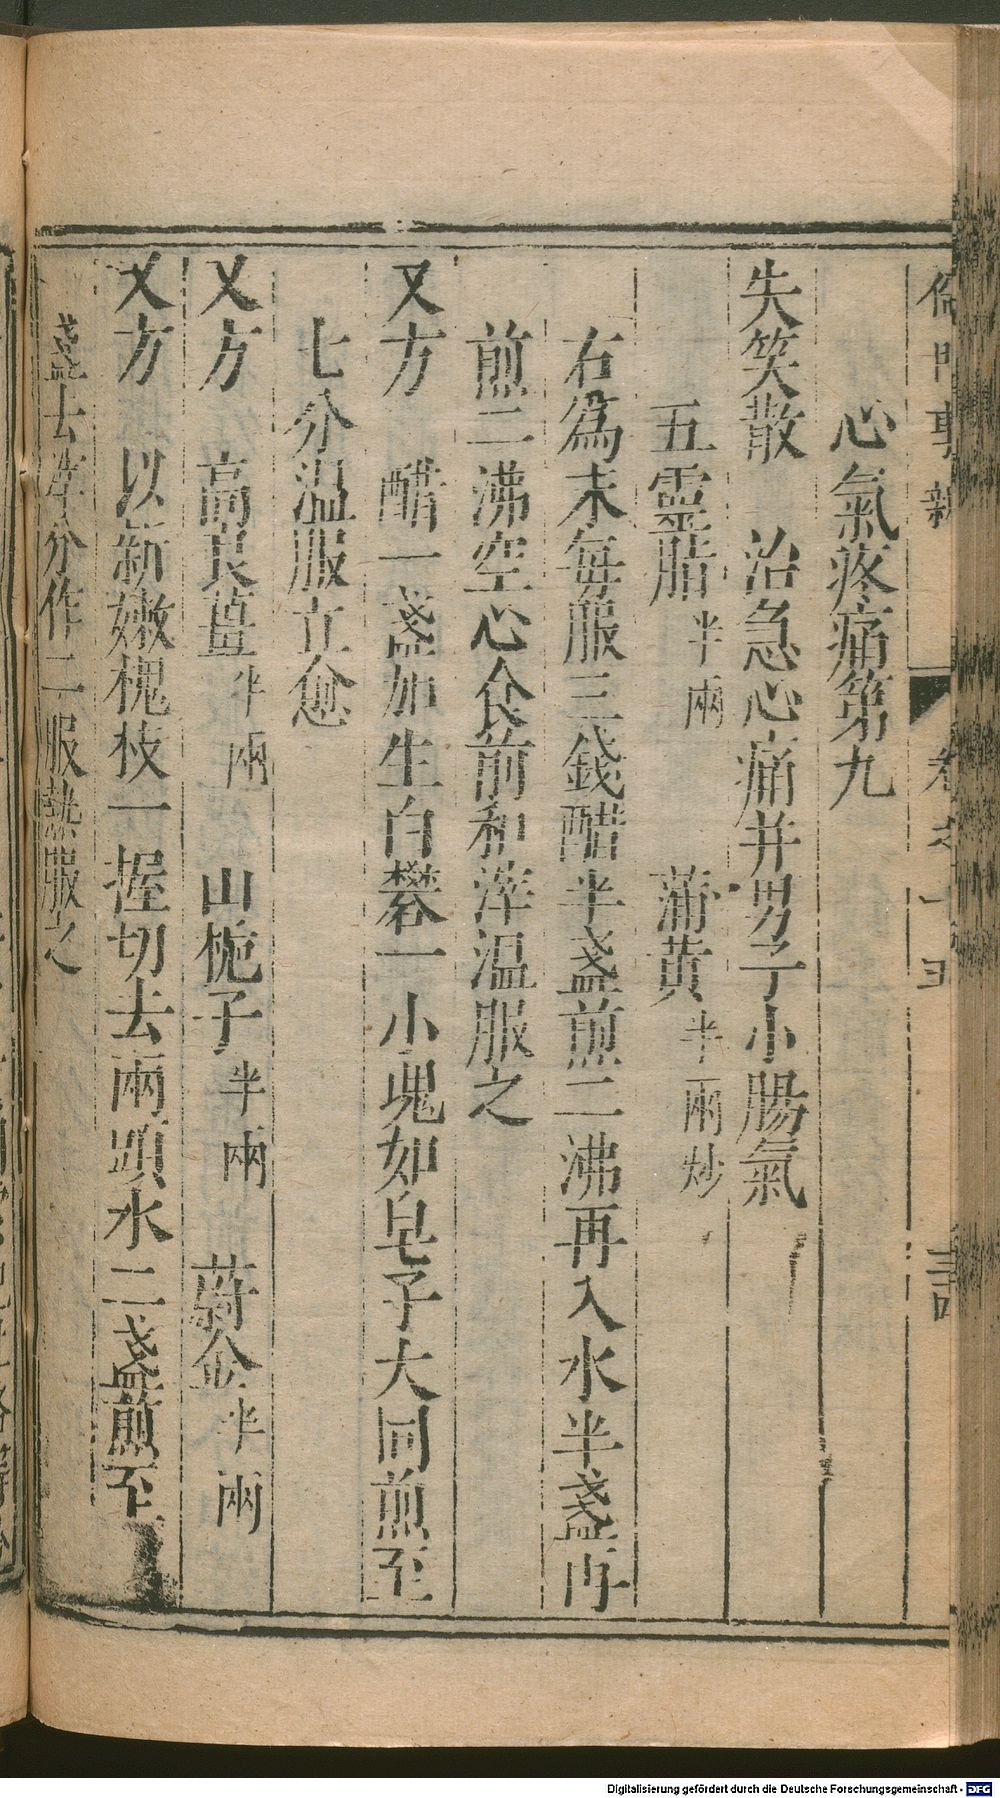 心氣疼痛第九
失笑散　治急心痛并男子小腸氣
五靈脂半兩　蒲黄半兩炒
右為末毎服三錢醋半盞煎二沸再入水半盞再
煎二沸空心食前和滓温服之
又方　醋一盞加生白礬一小塊如皂子大同煎至
七分温服立愈
又方　高良薑半兩　山梔子半兩　蒟金半兩
又方　以新嫩槐枝一握切去兩頭水二盞煎至
盞去滓分作二服熱服之
Digitalisierung gefördert durch die Deutsche Forschungsgemeinschaft - DFG